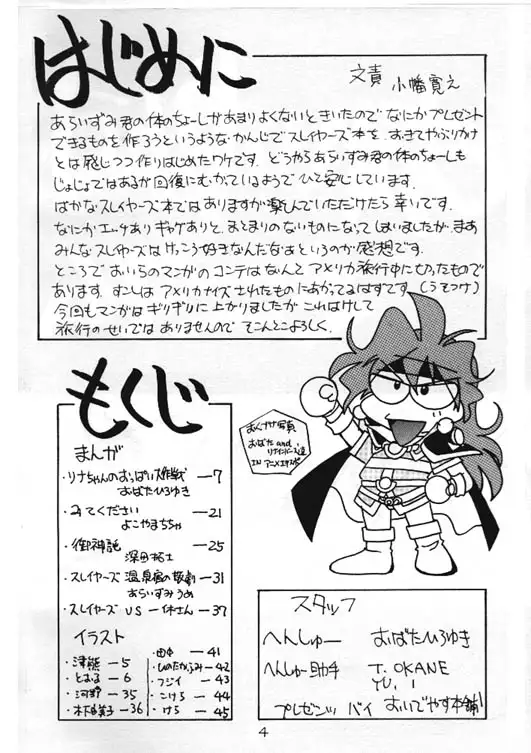 はじめに
文責 小幡寛之
あらいずみ君の体のちょーしがあまりよくないときいたので なにかプレゼント
できるものを作ろうというような かんじで スレイヤーズ本を、おきてやぶりかナ
とは感じつつ作りはじめたワケです。どうやらあらいずみ君の体のちょーしも
じょじょではあるが回復にむかっているようで ひと安心しています。
ばかなスレイヤーズ本ではありますが楽しんでいただけたら幸いです。
なにかエッチあり ギャグありと、まとまりのないものになってしまいましたが、まあ
みんなスレイヤーズはけっこう好きなんだなぁというのが感想です。
ところで おいらのマンガのコンテは なんと アメリカ旅行中に切ったもので
あります。すこしは アメリカナイズされたものにあがってるはずです（うそつけ）
今回もマンガはギリギリに上がりましたが これはけして
旅行のせいでは ありませんので そこんとこよろしく。
もくじ
まんが
・リナちゃんのおっぱい大作戦 —7
おばたひろゆき
・みてください —21
よこやまちちゃ
・御神託 —25
深田拓士
・スレイヤーズ 温泉宿の惨劇 —31
あらいずみうめ
・スレイヤーズ VS 一休さん —37
イラスト
・津熊 —5
・とおる —6
・河野 —35
・木下由美子 —36
・田中 —41
・ひのたかふみ —42
・フジイ —43
・こけら —44
・けら —45
おくづけ写真
おばた and
リナインバース達
IN アニメエキスポ
スタッフ
へんしゅー おばたひろゆき
へんしゅー助手 T. OKANE
YU. I
プレゼンツ バイ おいでやす本舗
4